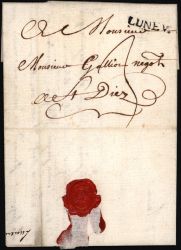 A Monsieur
LUNEV
Monsieur Gallion negot
a St Diez